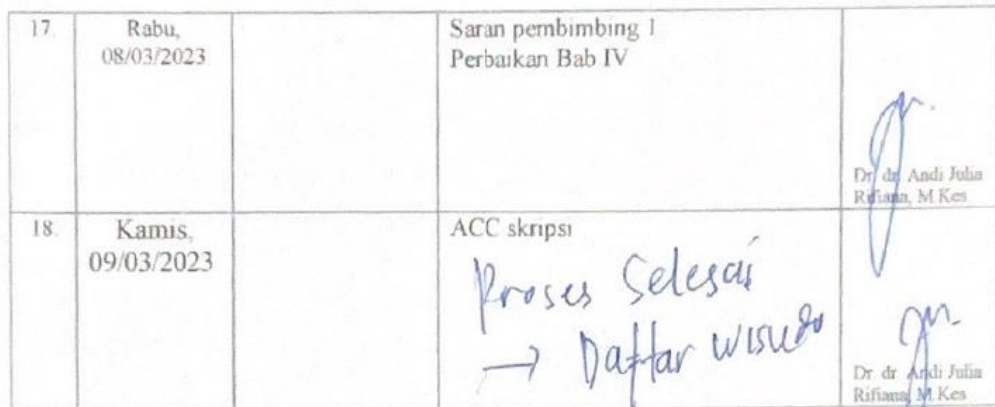 17. Rabu,
08/03/2023
Saran pembimbing 1
Perbaikan Bab IV
Dr. dr. Andi Julia
Rifiana, M.Kes
18. Kamis,
09/03/2023
ACC skripsi
Proses Selesai
→ Daftar wisuda
Dr. dr. Andi Julia
Rifiana, M.Kes